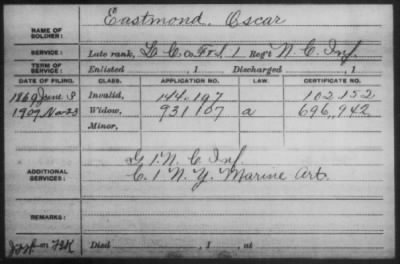 NAME OF SOLDIER: Eastmond, Oscar
SERVICE: Late rank, L. C. Co. F & S, 1 Reg't N. C. Inf.
TERM OF SERVICE: Enlisted , 1 Discharged , 1
DATE OF FILING. CLASS. APPLICATION NO. LAW. CERTIFICATE NO.
1869 June 8 Invalid, 144.197 102.152
1909 Nov 23 Widow, 931107 a 696,942
Minor,
ADDITIONAL SERVICES: G 1 N. C. Inf.
C. 1 N. Y. Marine Art.
REMARKS:
Died , 1 , at